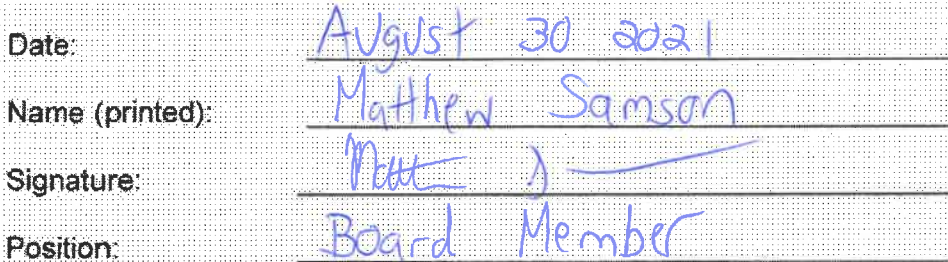 Date: August 30 2021
Name (printed): Matthew Samson
Signature:
Position: Board Member